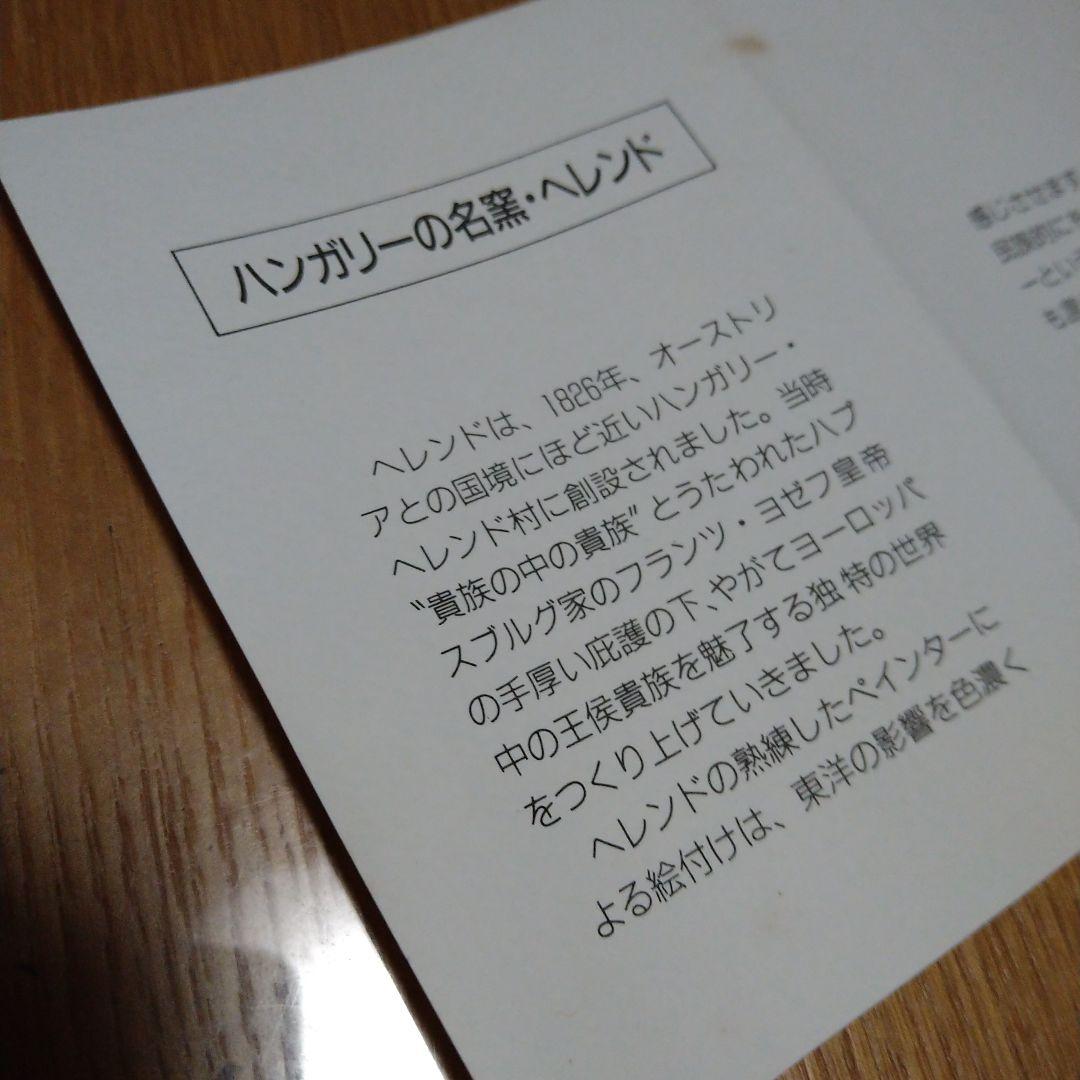 ハンガリーの名窯・ヘレンド
ヘレンドは、1826年、オーストリ
アとの国境にほど近いハンガリー・
ヘレンド村に創設されました。当時
〝貴族の中の貴族〟とうたわれたハプ
スブルグ家のフランツ・ヨゼフ皇帝
の手厚い庇護の下、やがてヨーロッパ
中の王侯貴族を魅了する独特の世界
をつくり上げていきました。
ヘレンドの熟練したペインターに
よる絵付けは、東洋の影響を色濃く
感じさせます
ーという